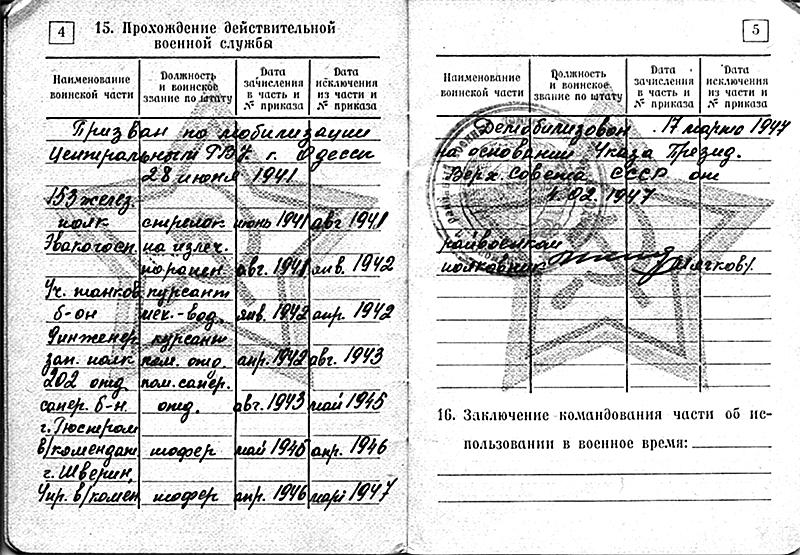 4
15. Прохождение действительной
военной службы
Наименование
воинской части
Должность
и воинское
звание по штату
Дата
зачисления
в часть и
№ приказа
Дата
исключения
из части и
№ приказа
Призван по мобилизации
Центральным РВК г. Одессы
28 июня 1941
153 желез.
полк стрелок июнь 1941 авг 1941
Эвакогосп. на излеч.
по ранен. авг. 1941 янв. 1942
Уч. танков курсант
б-он мех.-вод. янв. 1942 апр. 1942
9 инженер курсант
зап. полк пом. отд. апр. 1942 авг. 1943
202 отд пом. сапер.
сапер. б-н. отд. авг. 1943 май 1945
г. Гюстром
в/комендат шофер май 1945 апр. 1946
г. Шверин,
Упр. в/комен шофер апр. 1946 март 1947
5
Наименование
воинской части
Должность
и воинское
звание по штату
Дата
зачисления
в часть и
№ приказа
Дата
исключения
из части и
№ приказа
Демобилизован 17 марта 1947
на основании Указа Презид.
Верх. Совета СССР от
02. 1947
райвоенком
полковник Мячков/.
16. Заключение командования части об ис-
пользовании в военное время: